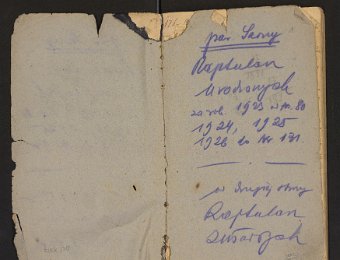 par. Sarny
Raptularz
Urodzonych
za rok 1923 od № 80
1924, 1925
1926 do Nr 131
w drugiej strony
Raptularz